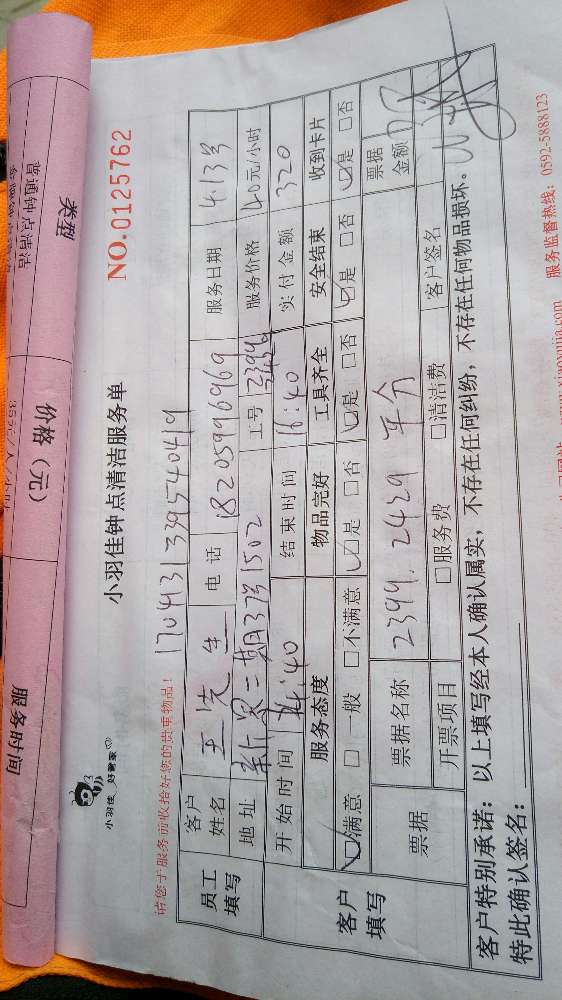 类型
价格（元）
服务时间
普通钟点清洁
小羽佳 好管家
小羽佳钟点清洁服务单
NO.0125762
请您于服务前收拾好您的贵重物品！
1704131339540419
员工填写
客户姓名 王先生 电话 18205996969 服务日期 4.13号
地址 二期37号1502 工号 2399 服务价格 40元/小时
开始时间 14:40 结束时间 16:40 实付金额 320
客户填写
服务态度 物品完好 工具齐全 安全结束 收到卡片
☑满意 □一般 □不满意 ☑是 □否 ☑是 □否 ☑是 □否 ☑是 □否
票据 票据名称 2399.2429 平分 票据金额
开票项目 □服务费 □清洁费 客户签名
客户特别承诺：以上填写经本人确认属实，不存在任何纠纷，不存在任何物品损坏。
特此确认签名：
服务监督热线：0592-5888123